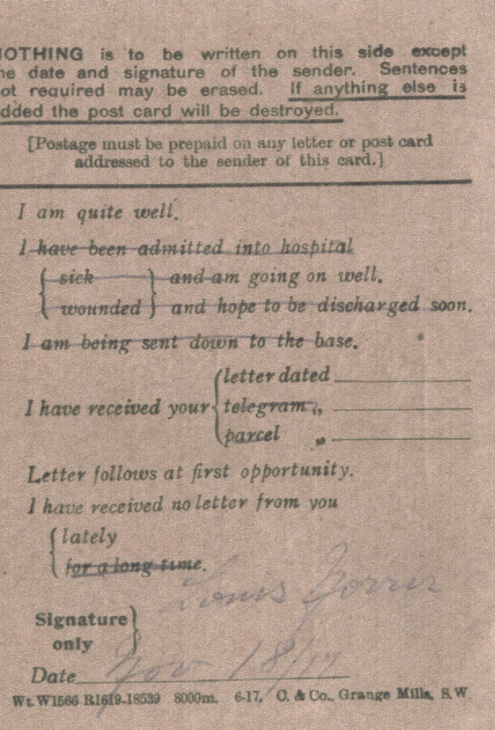 NOTHING is to be written on this side except
he date and signature of the sender. Sentences
ot required may be erased. If anything else is
dded the post card will be destroyed.
[Postage must be prepaid on any letter or post card
addressed to the sender of this card.]
I am quite well.
I have been admitted into hospital
{ sick } and am going on well.
{ wounded } and hope to be discharged soon.
I am being sent down to the base.
I have received your { letter dated
telegram „
parcel „
Letter follows at first opportunity.
I have received no letter from you
{ lately
for a long time.
Louis
Signature }
only
Date Nov 18/17
Wt. W1566 R1619-18539 8000m. 6-17. C. & Co., Grange Mills, S.W.